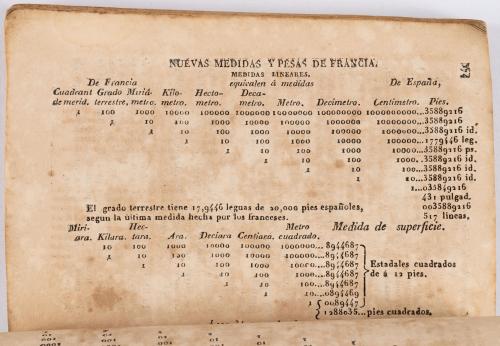 NUEVAS MEDIDAS Y PESAS DE FRANCIA.
MEDIDAS LINEARES.
De Francia equivalen á medidas De España,
Cuadrant Grado Mirid- Kilo- Hecto- Deca-
de merid. terrestre, metro. metro. metro. metro. Metro. Decimetro. Centimetro. Pies.
1 100 1000 10000 100000 1000000 10000000 100000000 1000000000...35889216
1 10 100 1000 10000 100000 1000000 10000000...35889216
1 10 100 1000 10000 100000 1000000...35889216 id.
1 10 100 1000 10000 100000...1779446 leg.
1 10 100 1000 10000...35889216 ps.
1 10 100 1000...35889216 id.
1 10 100...35889216 id.
1 10...35889216 id.
1...035849216
431 pulgad.
003589216
517 lineas.
El grado terrestre tiene 17,9446 leguas de 20,000 pies españoles,
segun la última medida hecha por los franceses.
Miri- Hec- Metro Medida de superficie.
ara. Kilara. tara. Ara. Declara Centiaea. cuadrado.
10 100 1000 10000 100000 1000000...8944687
1 10 100 1000 10000 100000...8944687
1 10 100 1000 10000...8944687
1 10 100 1000...8944687
1 10 100...8944687
1 10...0894469
1 0089447
1288035...pies cuadrados.
Estadales cuadrados
de á 12 pies.